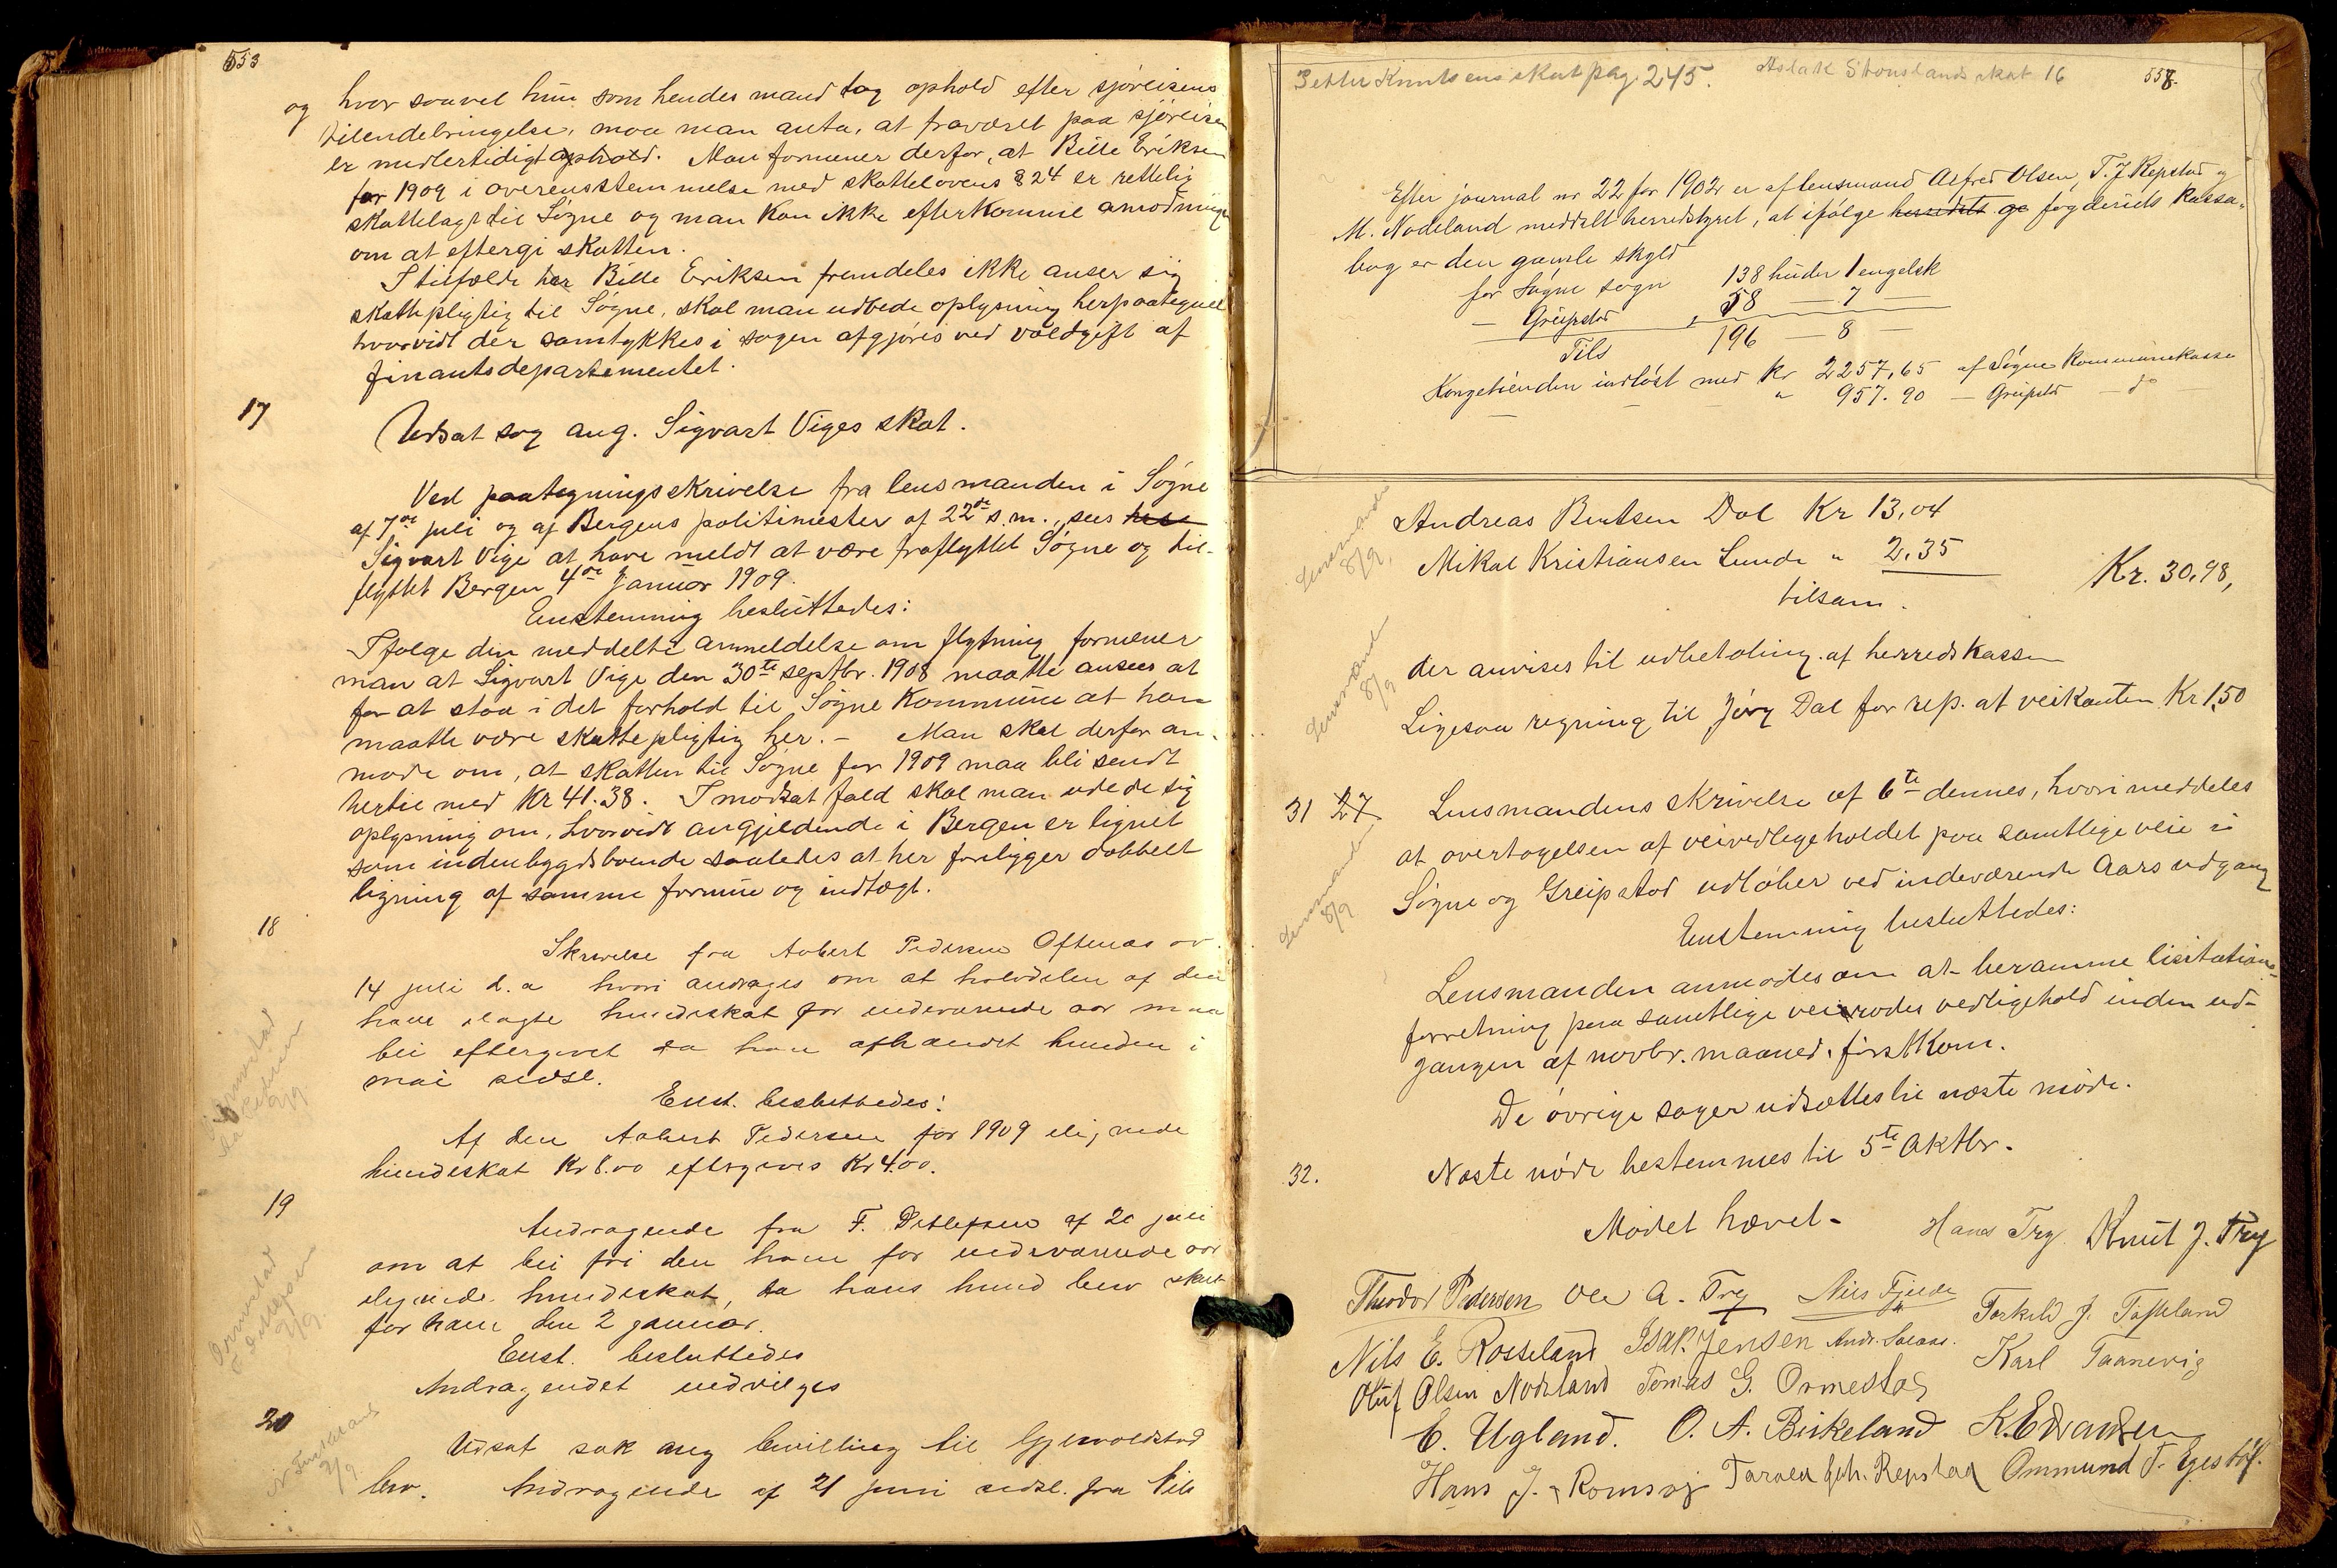 553
og hvor saavel hun som hendes mand tog ophold efter sjöreisens
tilendebringelse, maa man anta, at fraværet paa sjöreisen
er midlertidigt ophold. Man formener derfor, at Bille Eriksen
for 1909 i overensstemmelse med skattelovens § 24 er rettelig
skattelagt til Sögne og man kan ikke efterkomme anmodningen
om at eftergi skatten.
I tilfælde har Bille Eriksen fremdeles ikke anser sig
skattepligtig til Sögne, skal man udbede oplysning herpaategnet
hvorvidt der samtykkes i sagen afgjöres ved voldgift af
finantsdepartementet.
17
Udsat sag ang. Sigvart Viges skat.
Ved paategningsskrivelse fra lensmanden i Sögne
af 7de juli og af Bergens politimester af 22de s.m., sees
Sigvart Vige at have meldt at være fraflyttet Sögne og til-
flyttet Bergen 4de Januar 1909.
Enstemmig besluttedes:
Ifölge den meddelte anmeldelse om flytning formener
man at Sigvart Vige den 30te septbr. 1908 maatte ansees at
for at staa i det forhold til Sögne Kommune at han
maatte være skattepligtig her. - Man skal derfor an-
mode om, at skatten til Sögne for 1909 maa bli sendt
hertil med Kr 41.38. I modsat fald skal man udbede sig
oplysning om, hvorvidt angjeldende i Bergen er lignet
som indenbygdsboende saaledes at her foreligger dobbelt
ligning af samme formue og indtægt.
18
Skrivelse fra Aabert Pedersen Oftenæs av
14 juli d.a hvori andrages om at halvdelen af den
ham ilagte hundeskat for indeværende aar maa
bli eftergivet da han afhændet hunden i
mai sidstl.
Enst. besluttedes:
Af den Aabert Pedersen for 1909 ilignede
hundeskat Kr 8.00 eftergives Kr 4.00.
19
Andragende fra F. Detlefsen af 20 juli
om at bli fri den ham for indeværende aar
ilignede hundeskat, da hans hund blev skut
for ham den 2 januar.
Enst. besluttedes
Andragendet indvilges
Ormestad
F Detlefsen
9/9
20
Udsat sak ang bevilling til Gjervoldstad
bro. Andragende af 21 juni sidstl. fra Nils
Petter Knutsens skat pag. 245. Aslak Stouslands skat 16
558.
Efter journal nr 22 for 1902 er af lensmand Alfred Olsen, T. J. Repstad og
M. Nodeland meddelt herredstyret, at ifölge herredets og fogderiets kassa-
bog er den gamle skyld
for Sögne sogn 138 huder 1 engelsk
— Greipstad „ 58 — 7 —
Tils 196 — 8 —
Kongetienden indlöst med Kr 2257,65 af Sögne Kommunekasse
— — " 957.90 — Greipstd — do
Lensmanden
8/9.
Andreas Bentsen Dal Kr 13,04
Mikal Kristiansen Lunde " 2,35
tilsam. Kr. 30,98,
der anvises til udbetaling af herredskassen
Lensmanden
8/9
Ligesaa regning til Jörg Dal for rep. af veikanten Kr 1,50
31 27 Lensmandens skrivelse af 6te dennes, hvori meddeles
at overtagelsen af veivedligeholdet paa samtlige veie i
Sögne og Greipstad udlöber ved indeværende Aars udgang
Lensmanden
8/9
Enstemmig besluttedes:
Lensmanden anmodes om at beramme licitations-
forretning paa samtlige veirodes vedligehold inden ud-
gangen af novbr. maaned förstkom.
De övrige sager udsættes til næste möde.
32. Næste möde bestemmes til 5te Oktbr.
Mödet hævet - Hans Try. Knut J. Try
Theodor Pedersen Ole A. Try Nils Fjelde Torkild J. Tofteland
Nils E. Rosseland Isak Jensen Andr. Salaas. Karl Taanevig
Oluf Olsen Nodeland Tomas G. Ormestad
E. Ugland. O. A. Birkeland K. Edvardsen
Hans J. Romsøj Tarald Joh. Repstad Ommund T. Egestöl.